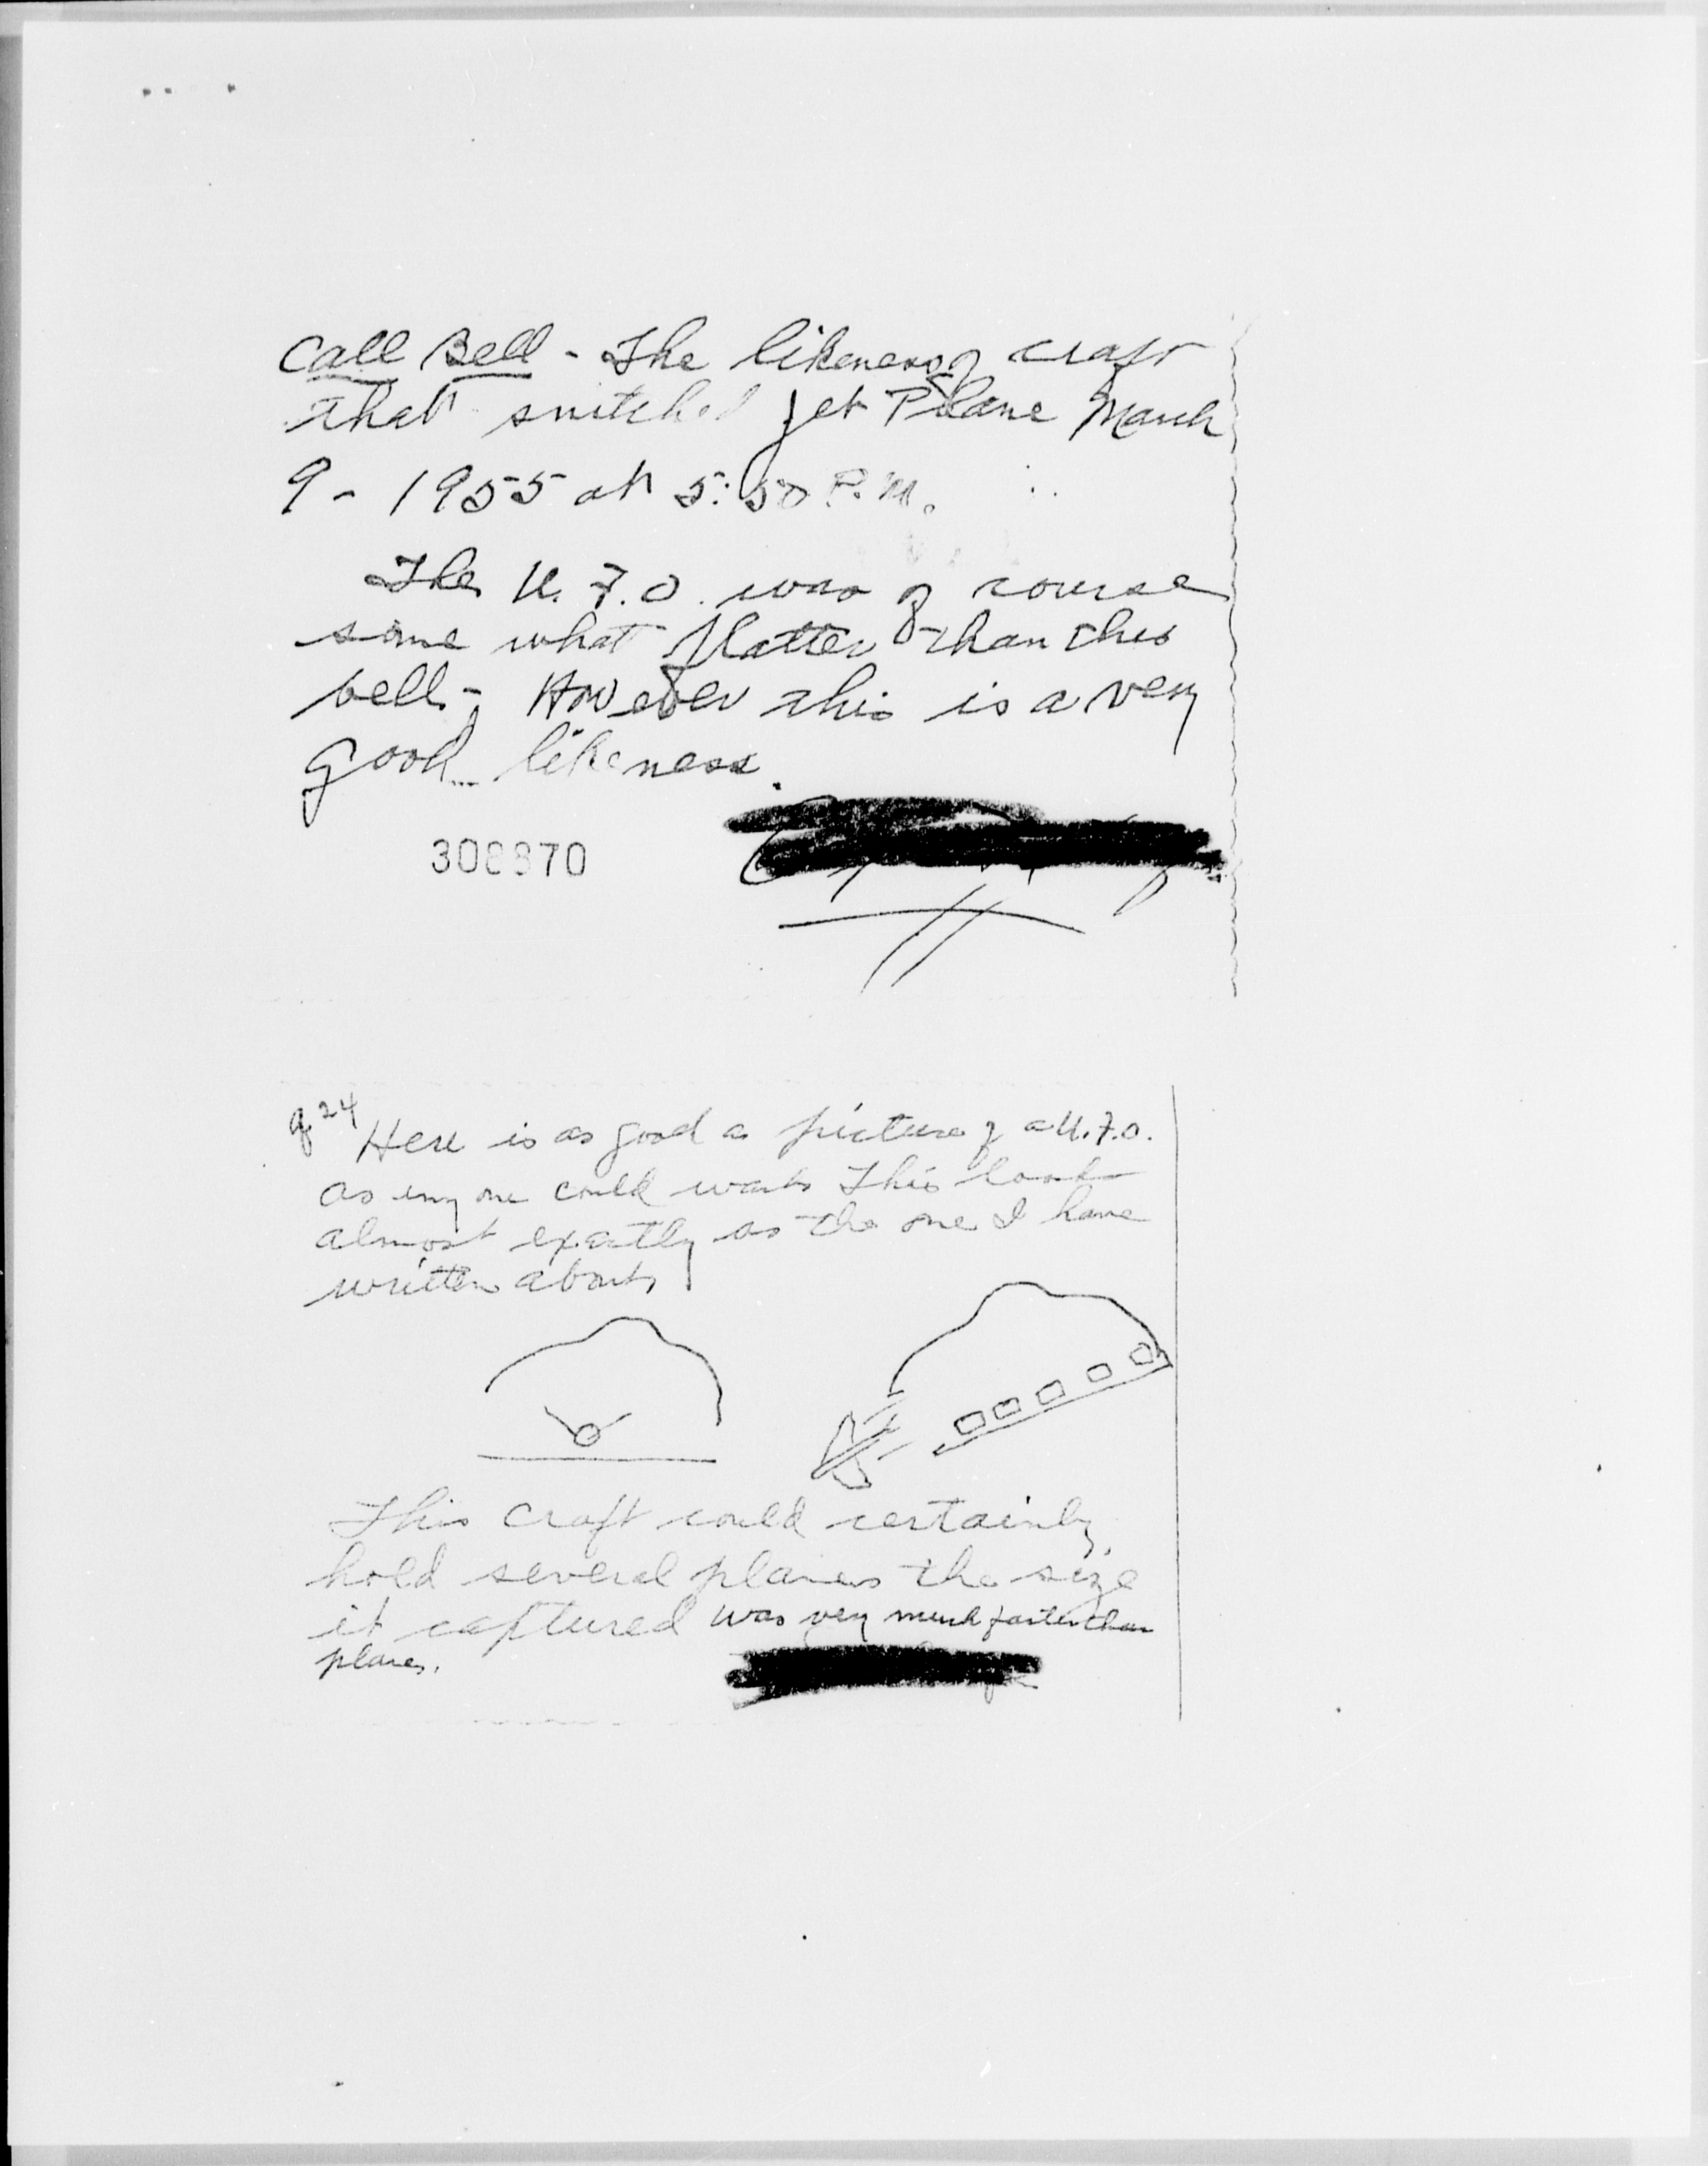 Call Bell - The likeness of craft
that snitched jet Plane March
9 - 1955 at 5:50 P.M.
The U.F.O. was of course
some what flatter than this
bell - However this is a very
good likeness.
308870
24
Here is as good a picture of a U.F.O.
as any one could want. This look
almost exactly as the one I have
written about,
This craft could certainly
hold several planes the size
it captured was very much faster than
planes.